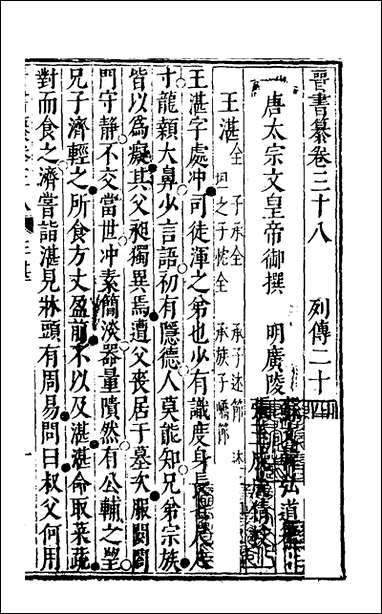 晉書纂卷三十八 列傳二十
唐太宗文皇帝御撰 明廣陵
王湛 子承 承子述
王湛字處冲司徒渾之弟也少有識度身長七尺八
寸龍顙大鼻少言語初有隱德人莫能知兄弟宗族
皆以為癡其父昶獨異焉遭父喪居于墓次服闋闔
門守靜不交當世冲素簡淡器量隤然有公輔之望
兄子濟輕之所食方丈盈前不以及湛湛命取菜蔬
對而食之濟嘗詣湛見牀頭有周易問曰叔父何用